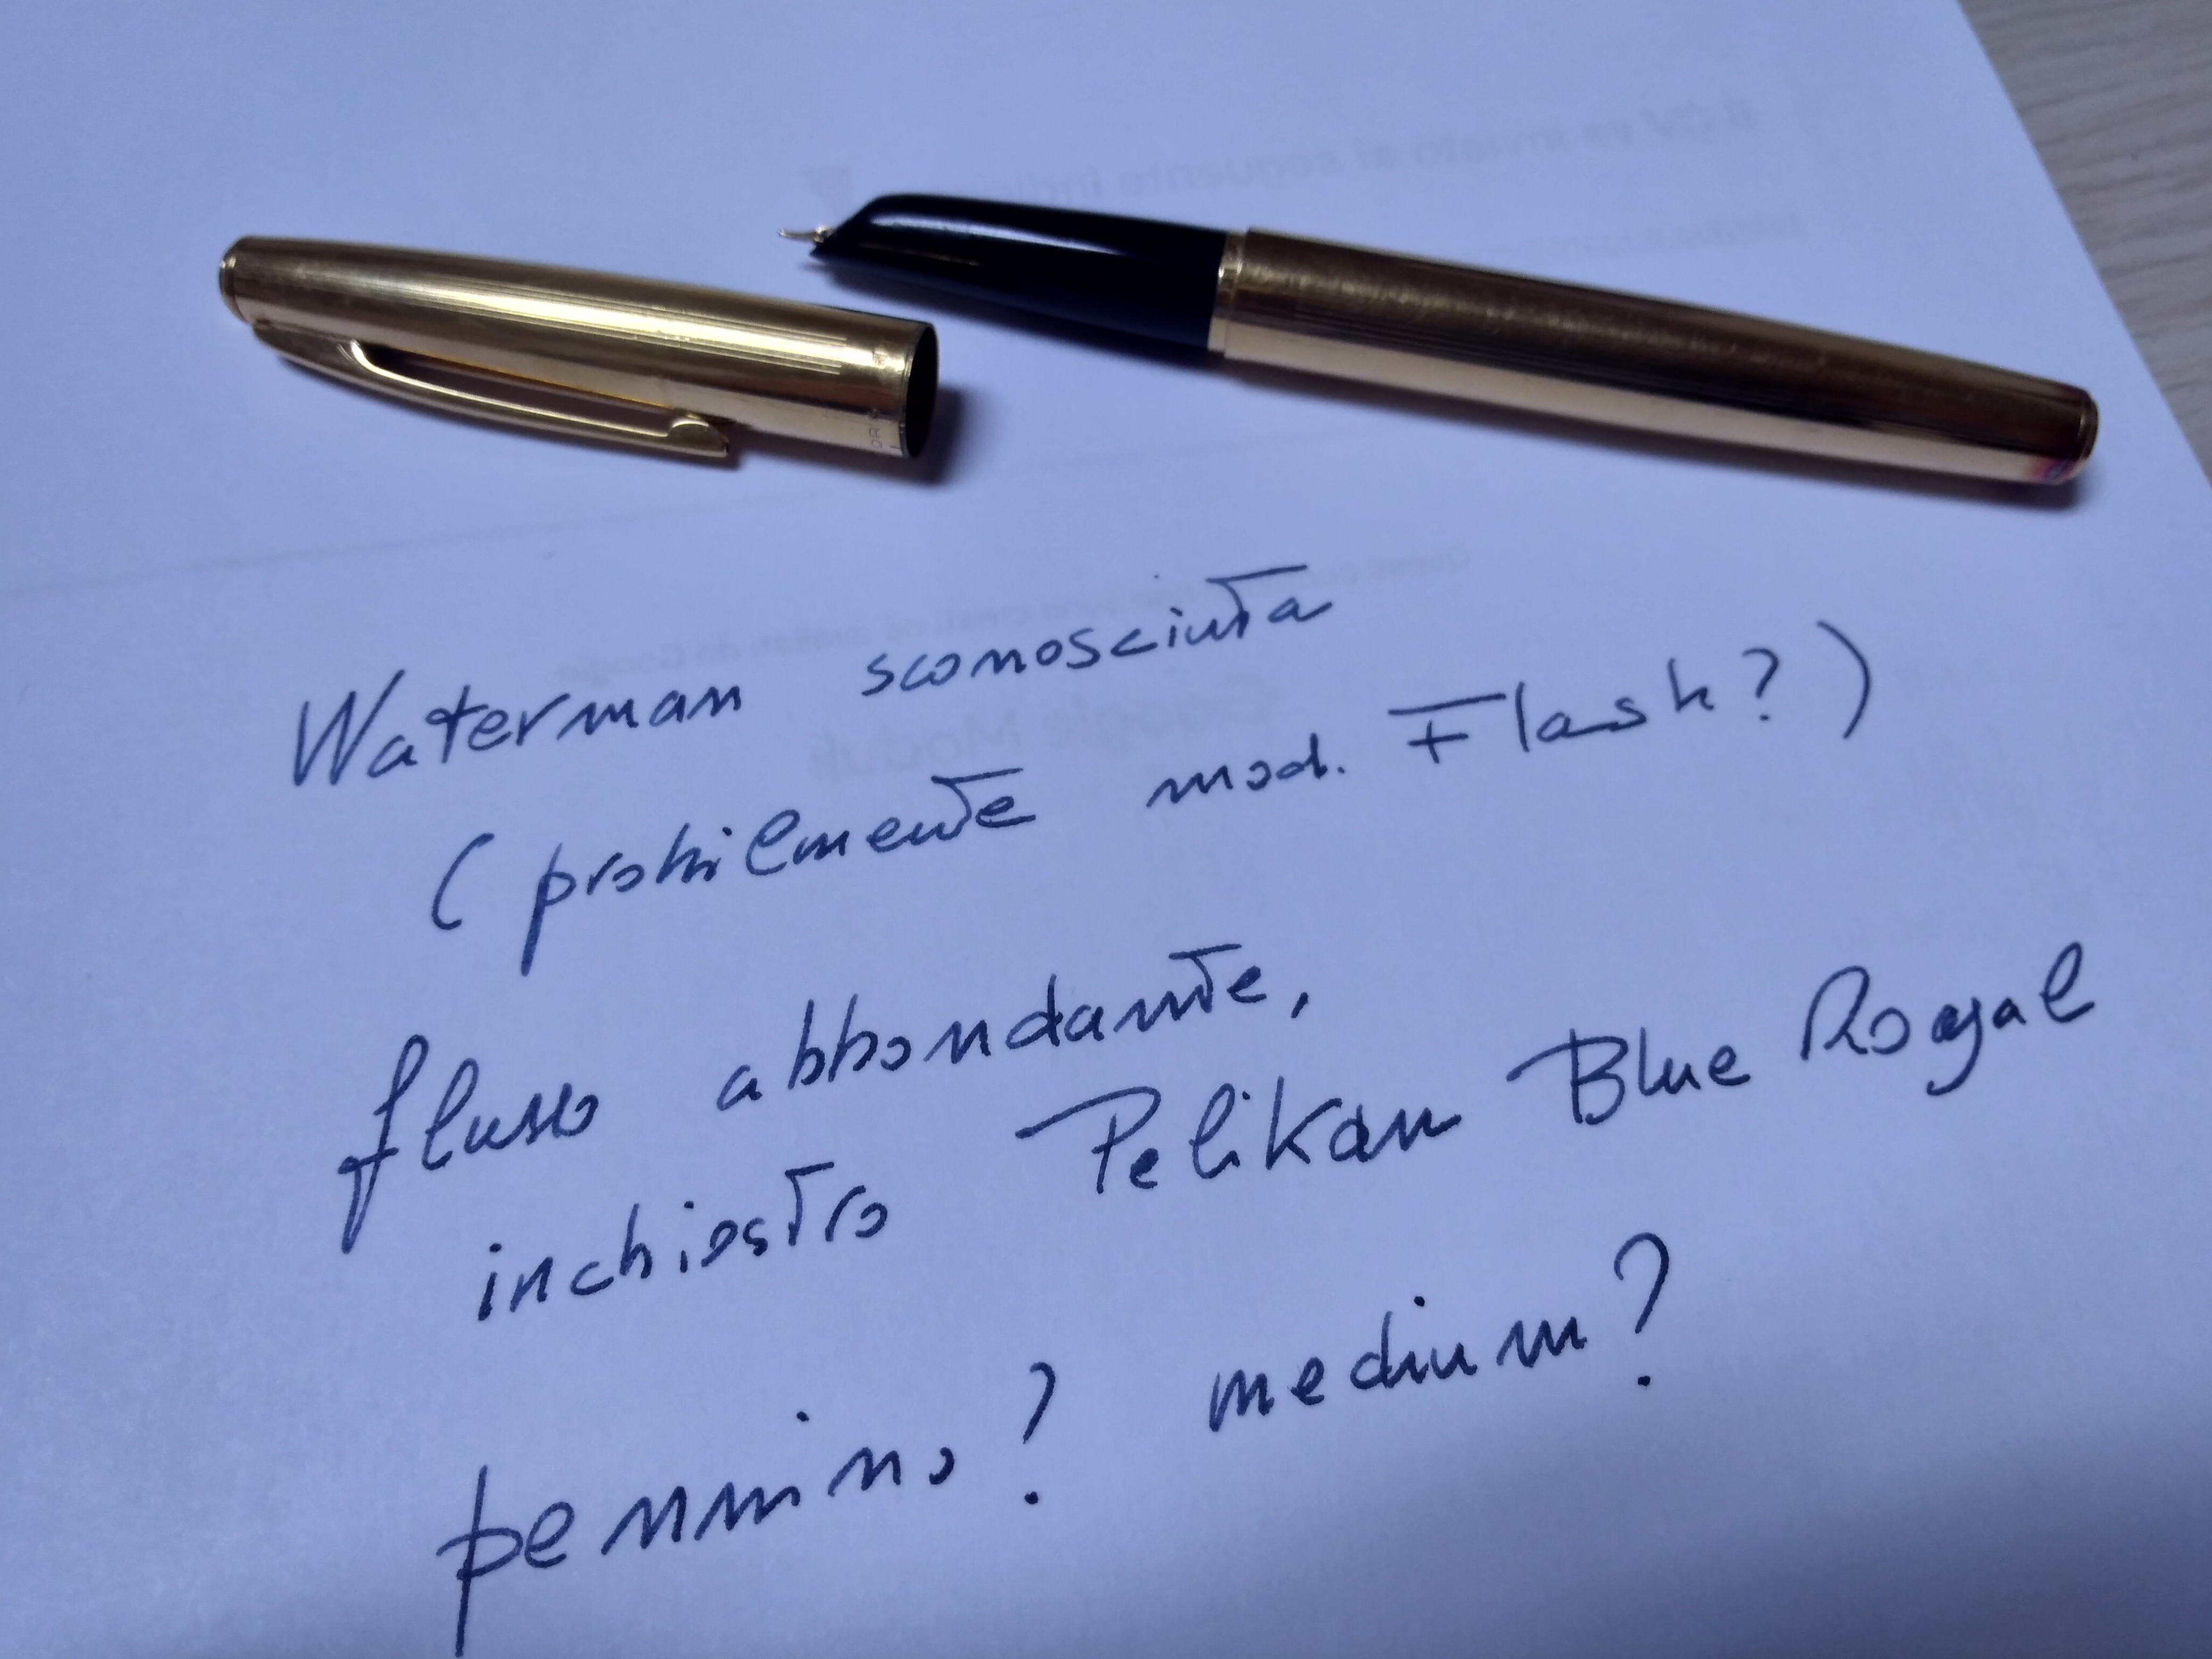 Waterman sconosciuta
(probilmente mod. Flash?)
flusso abbondante,
inchiostro Pelikan Blue Royal
pennino? medium?